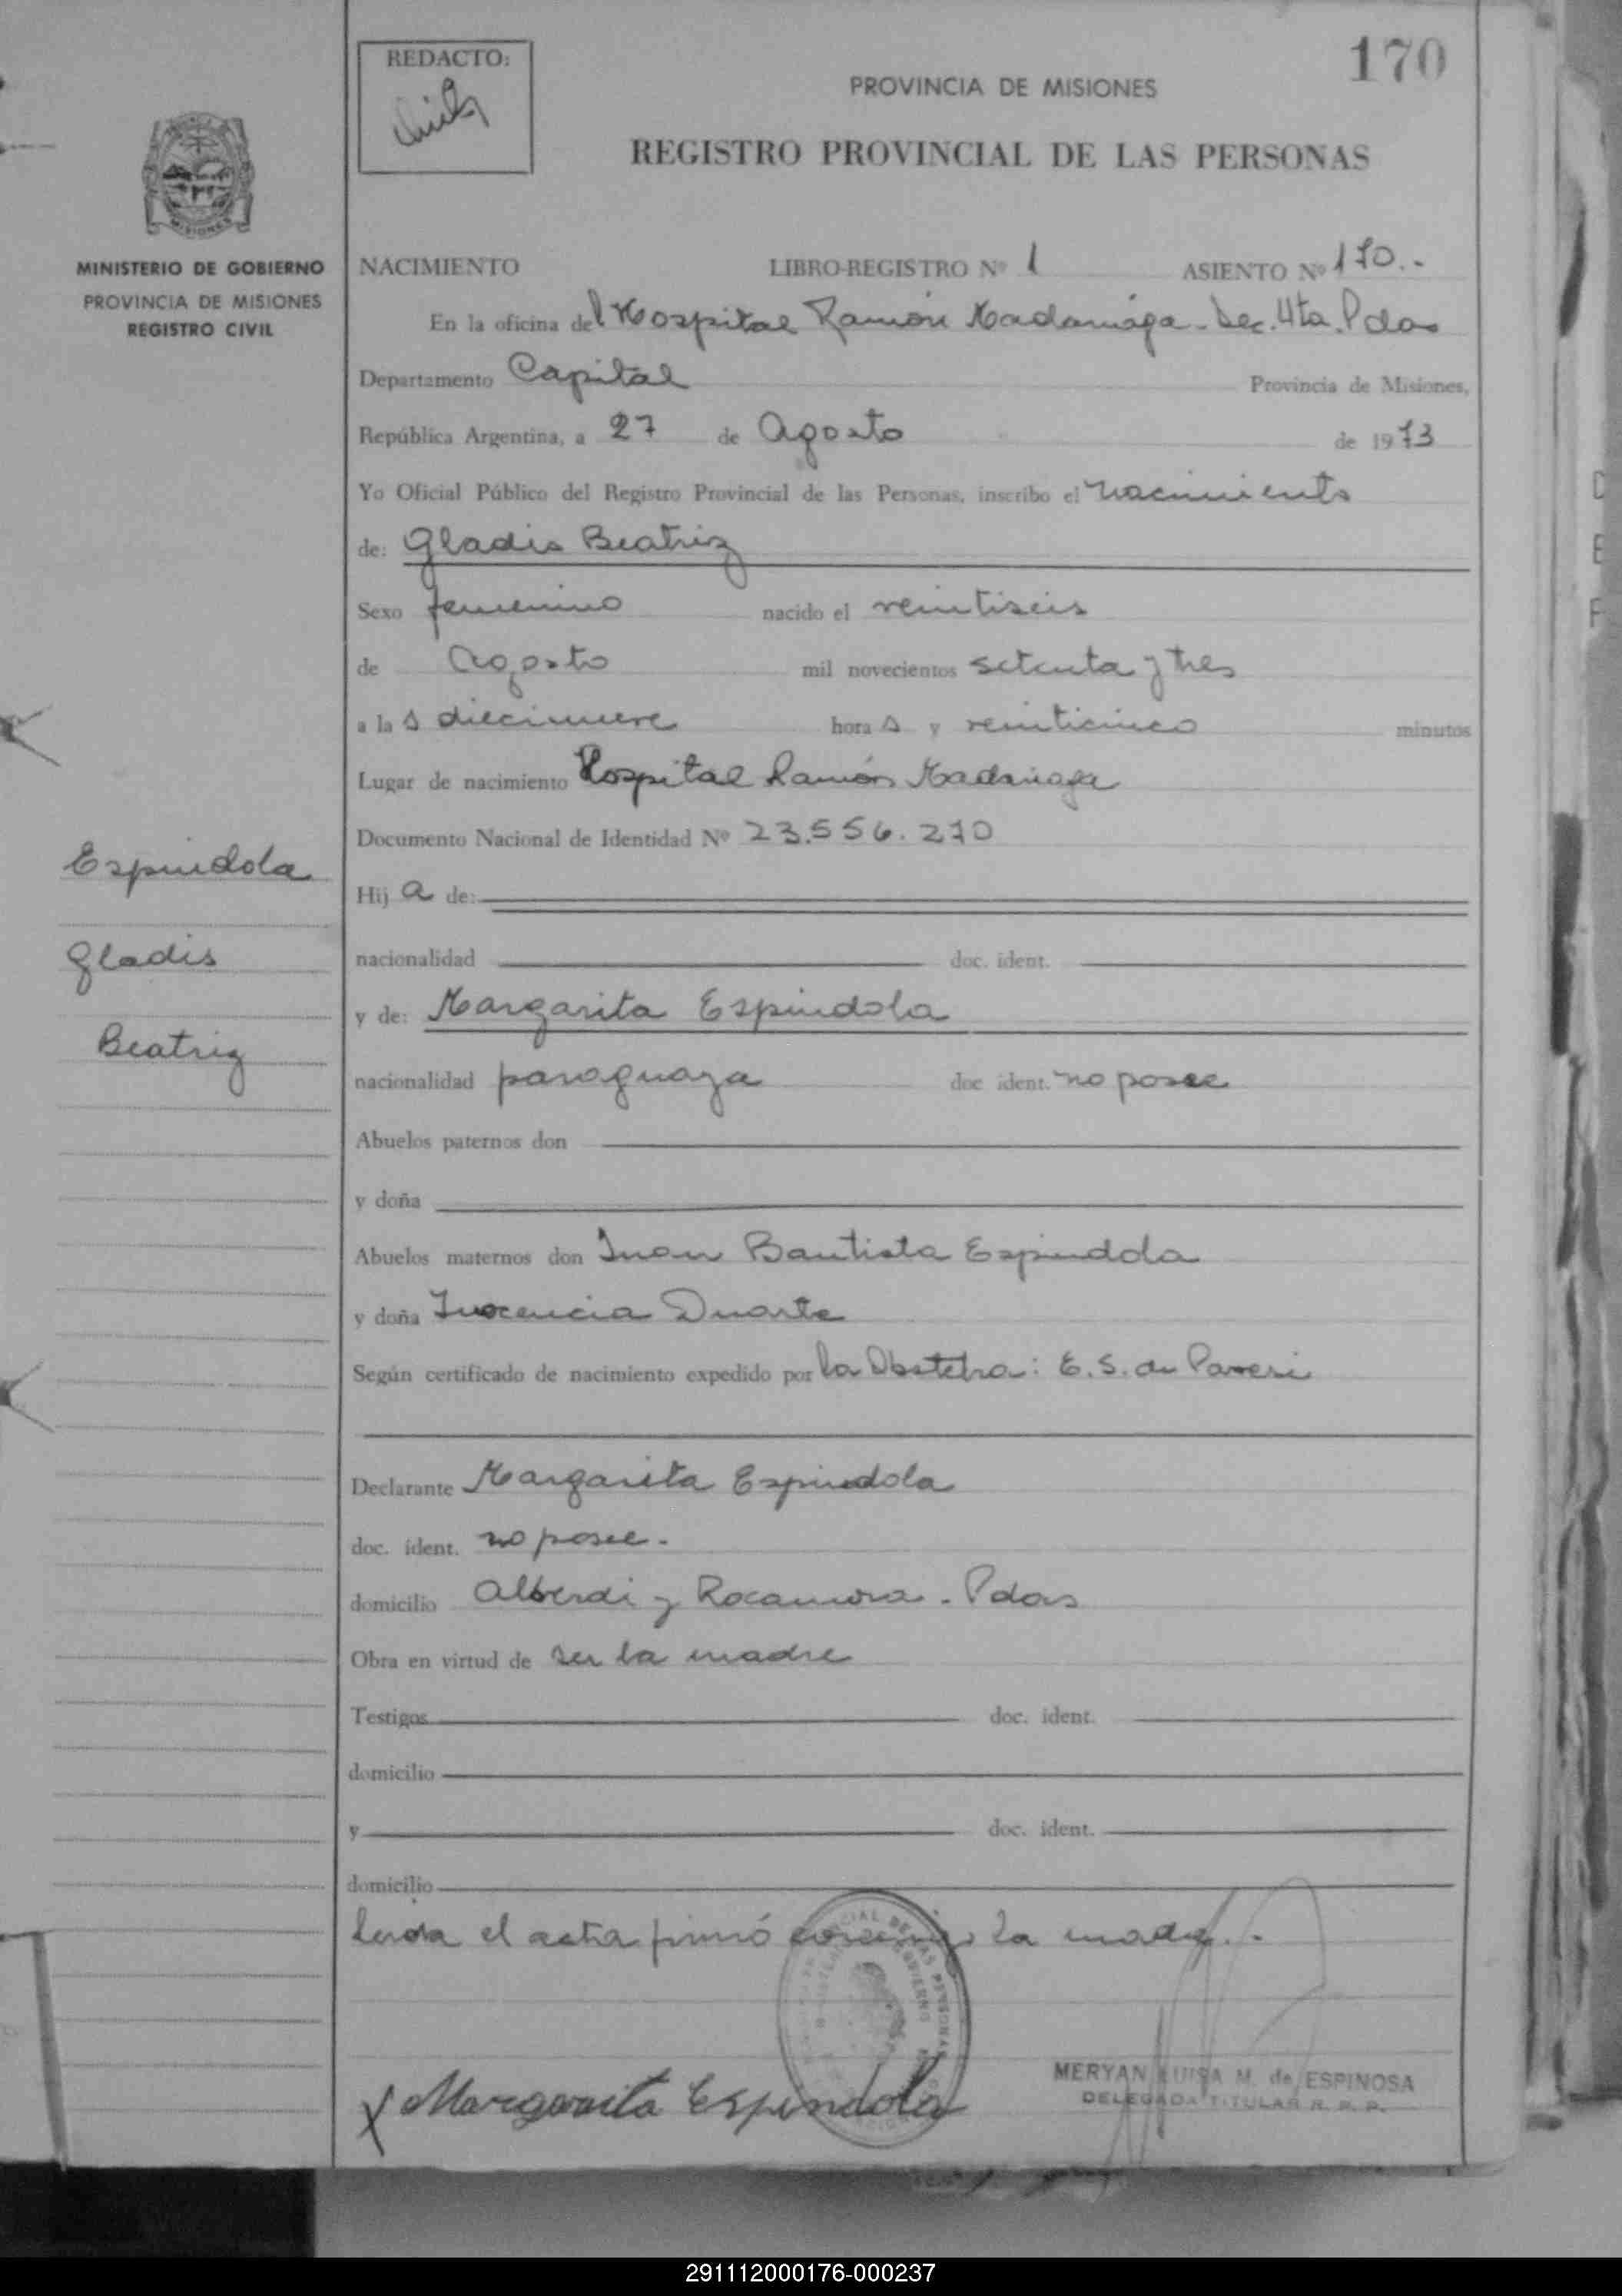 170
REDACTO:
PROVINCIA DE MISIONES
REGISTRO PROVINCIAL DE LAS PERSONAS
MISIONES
MINISTERIO DE GOBIERNO
PROVINCIA DE MISIONES
REGISTRO CIVIL
NACIMIENTO LIBRO-REGISTRO Nº 1 ASIENTO Nº 170.-
En la oficina del Hospital Ramón Madariaga - Sec. 4ta. Pdas
Departamento Capital Provincia de Misiones,
República Argentina, a 27 de Agosto de 1973
Yo Oficial Público del Registro Provincial de las Personas, inscribo el nacimiento
de: Gladis Beatriz
Sexo femenino nacido el veintiseis
de Agosto mil novecientos setenta y tres
a las diecinueve horas y veinticinco minutos
Lugar de nacimiento Hospital Ramón Madariaga
Documento Nacional de Identidad Nº 23.556.270
Espindola
Gladis
Beatriz
Hija de:
nacionalidad doc. ident.
y de: Margarita Espindola
nacionalidad paraguaya doc ident. no posee
Abuelos paternos don
y doña
Abuelos maternos don Juan Bautista Espindola
y doña Inocencia Duarte
Según certificado de nacimiento expedido por la Obstetra: E. S. de Paveri
Declarante Margarita Espindola
doc. ident. no posee.
domicilio Alberdi y Rocamora - Pdas
Obra en virtud de ser la madre
Testigos doc. ident.
domicilio
y doc. ident.
domicilio
Leída el acta firmó conmigo la madre.-
X Margarita Espindola
MERYAN LUISA M. de ESPINOSA
DELEGADA TITULAR R. P. P.
291112000176-000237